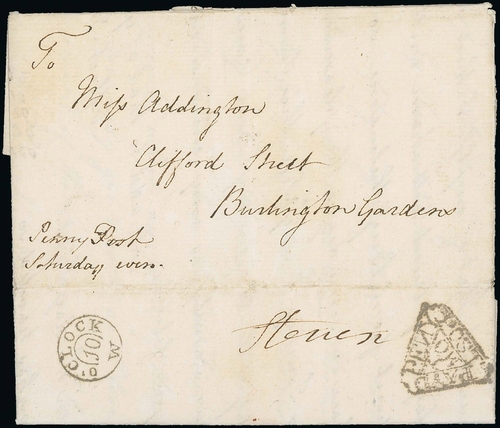 To
Miſs Addington
Clifford Street
Burlington Gardens
Penny Post
Saturday even.
Steven
10
O'CLOCK W
PENNY POST PAYD